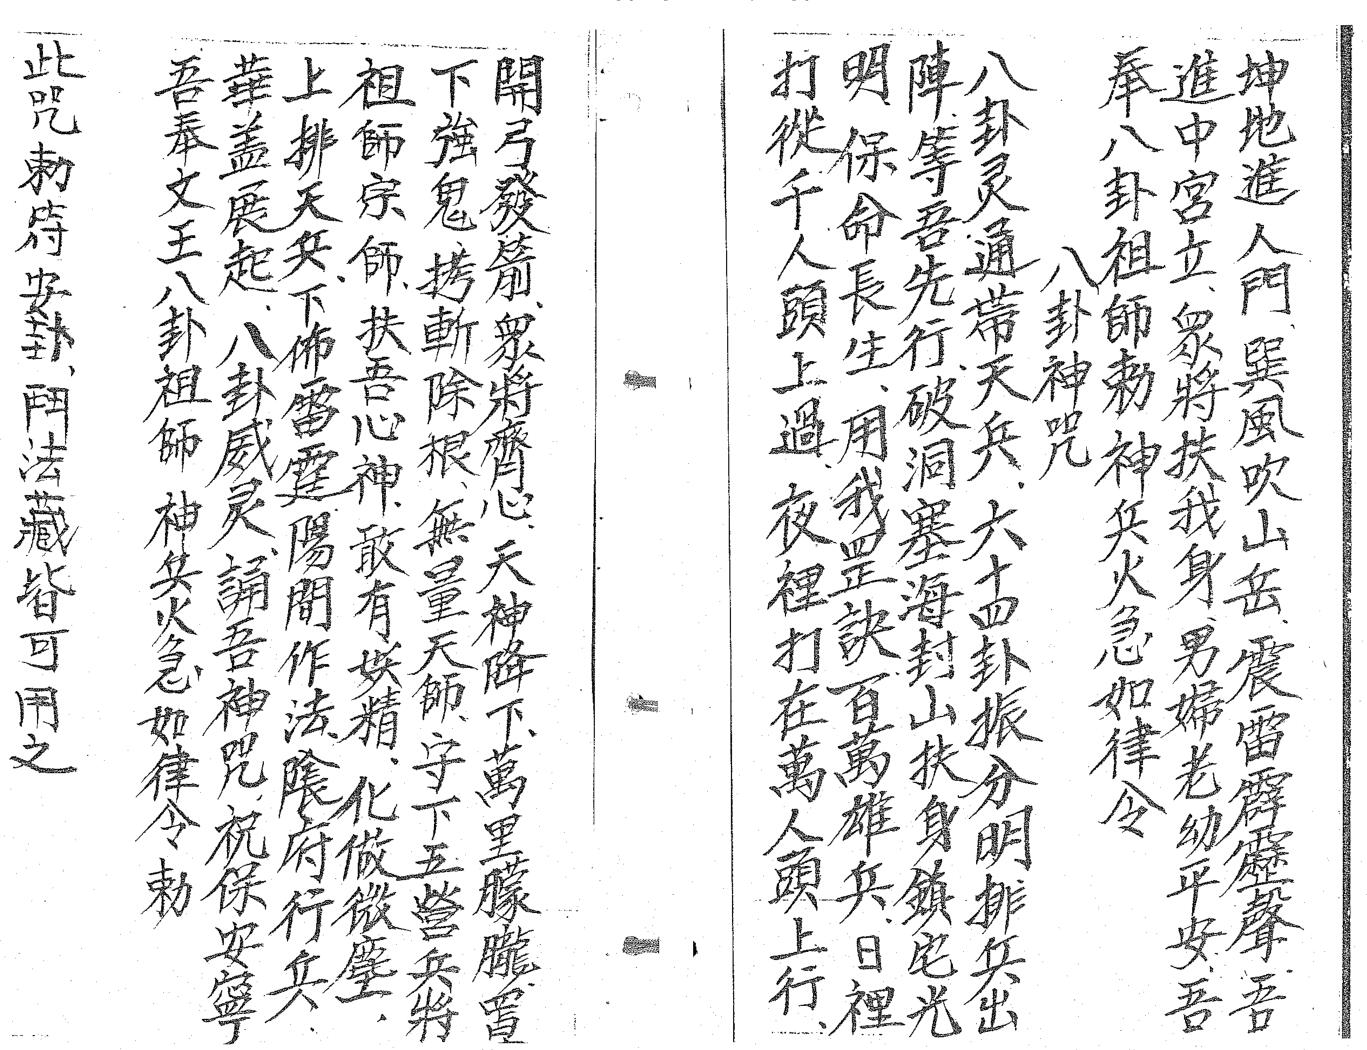 坤地進人門、巽風吹山岳、震雷霹靂聲、吾
進中宮立、眾將扶我身、男婦老幼平安、吾
奉八卦祖師勅 神兵火急如律令
八卦神咒
八卦灵通帶天兵、六十四卦振分明排兵出
陣、等吾先行、破洞塞海封山扶身鎮宅光
明、保命長生、用我罡訣百萬雄兵、日裡
打從千人頭上過、夜裡打在萬人頭上行、
開弓發箭、眾將齊心、天神降下、萬里朦朧、
下強鬼、拷斬除根、無量天師、守下五營兵將
祖師宗師、扶吾心神、敢有妖精、化做微塵、
上排天兵、下佈雷霆陽間作法、陰府行兵、
華盖展起、八卦威灵、誦吾神咒、祝保安寧
吾奉文王八卦祖師 神兵火急如律令勅
此咒勅符安卦、鬥法藏皆可用之